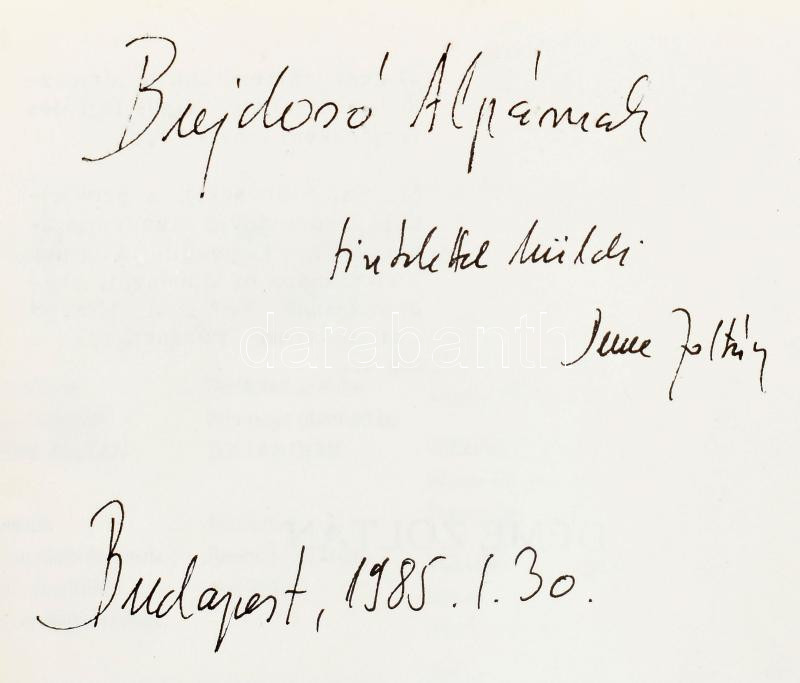 Bujdosó Alpárnak
tisztelettel küldi
Deme Zoltán
darabanth
Budapest, 1985. I. 30.
DEME ZOLTÁN